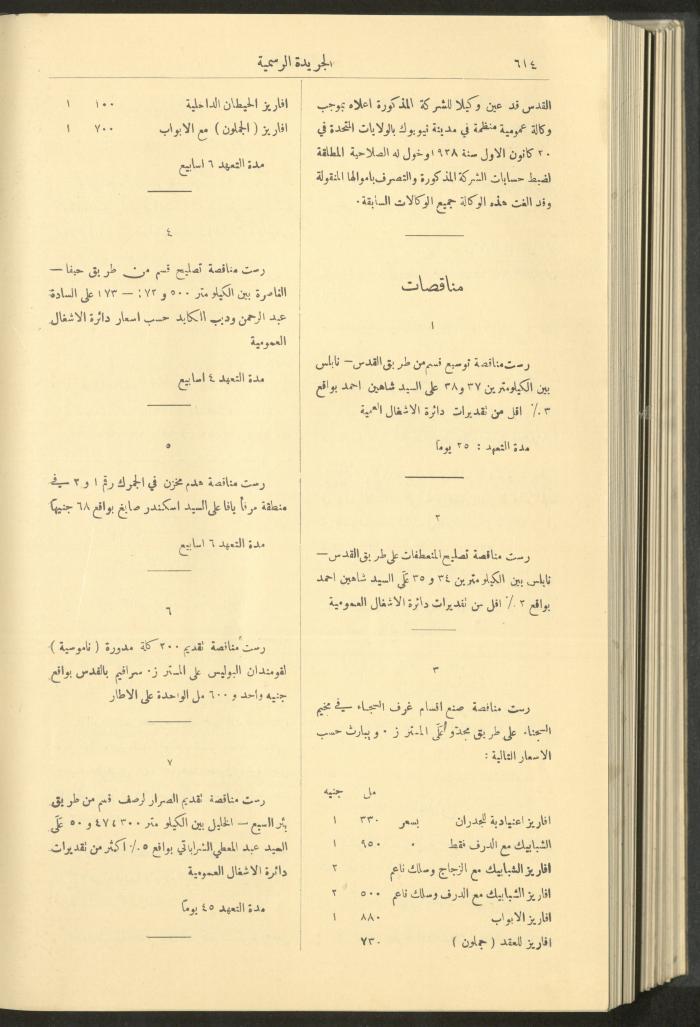 ٦١٤
الجريدة الرسمية
القدس قد عين وكيلا للشركة المذكورة اعلاه بموجب
وكالة عمومية منظمة في مدينة نيويوك بالولايات المتحدة في
٢٠ كانون الاول سنة ١٩٢٨ وخول له الصلاحية المطلقة
لضبط حسابات الشركة المذكورة والتصرف باموالها المنقولة
وقد الغت هذه الوكالة جميع الوكالات السابقة.
مناقصات
١
رست مناقصة توسيع قسم من طريق القدس — نابلس
بين الكيلومترين ٣٧ و ٣٨ على السيد شاهين احمد بواقع
٣٠٪ اقل من تقديرات دائرة الاشغال العمية
مدة التعهد : ٢٥ يوما
٢
رست مناقصة تصليح المنعطفات على طريق القدس —
نابلس بين الكيلومترين ٣٤ و ٣٥ على السيد شاهين احمد
بواقع ٢٠٪ اقل من تقديرات دائرة الاشغال العمومية
٣
رست مناقصة صنع اقسام غرف السجناء في مخيم
السجناء على طريق مجدو على المستر ز. ويبارث حسب
الاسعار التالية :
مل جنيه
افاريز اعتيادية للجدران بسعر ٣٣٠ ١
الشبابيك مع الدرف فقط ٠ ٩٥٠ ١
افاريز الشبابيك مع الزجاج وسلك ناعم ٢
افاريز الشبابيك مع الدرف وسلك ناعم ٥٠٠ ٢
افاريز الابواب ٨٨٠ ١
افاريز للعقد ( جملون ) ٧٣٠
افاريز الحيطان الداخلية ١٠٠ ١
افاريز ( الجملون ) مع الابواب ٧٠٠ ١
مدة التعهد ٦ اسابيع
٤
رست مناقصة تصليح قسم من طريق حيفا —
الناصرة بين الكيلو متر ٥٠٠ و ١٧٢ — ١٧٣ على السادة
عبد الرحمن وديب الكايد حسب اسعار دائرة الاشغال
العمومية
مدة التعهد ٤ اسابيع
٥
رست مناقصة هدم مخزن في الجمرك رقم ١ و ٢ في
منطقة مرفأ يافا على السيد اسكندر صايغ بواقع ٦٨ جنيها
مدة التعهد ٦ اسابيع
٦
رست مناقصة تقديم ٢٠٠ كلة مدورة ( ناموسية )
لقومندان البوليس على المستر ز. سرافيم بالقدس بواقع
جنيه واحد و ٦٠٠ مل الواحدة على الاطار
٧
رست مناقصة تقديم الصرار لرصف قسم من طريق
بئر السبع — الخليل بين الكيلو متر ٣٠٠ ٤٧٤ و ٥٠ على
السيد عبد المعطي الشراباتي بواقع ٥.٪ اكثر من تقديرات
دائرة الاشغال العمومية
مدة التعهد ٤٥ يوما